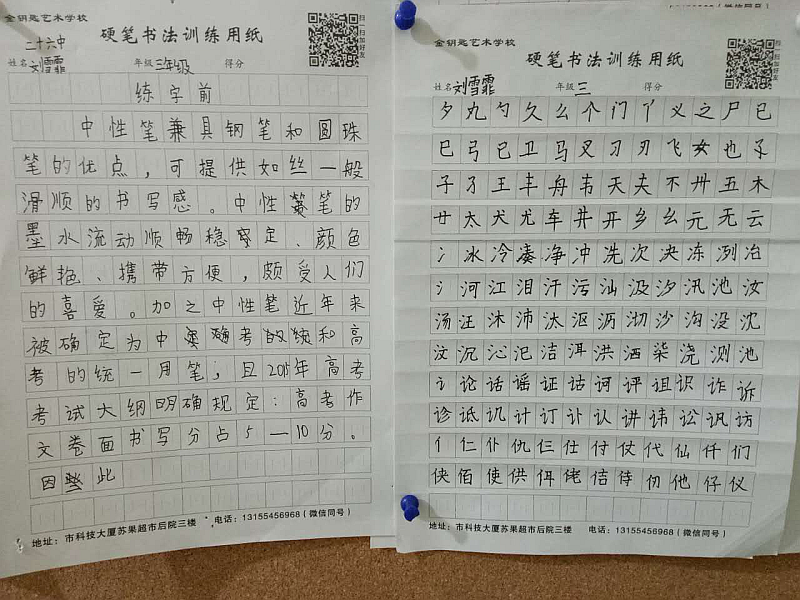 金钥匙艺术学校
硬笔书法训练用纸
扫一扫加好友
二十六中
姓名 刘雪霏 年级 三年级 得分
练字前
中性笔兼具钢笔和圆珠
笔的优点，可提供如丝一般
滑顺的书写感。中性笔的
墨水流动顺畅稳定、颜色
鲜艳、携带方便，颇受人们
的喜爱。加之中性笔近年来
被确定为中考的统和高
考的统一用笔；且2015年高考
考试大纲明确规定：高考作
文卷面书写分占5—10分。
因此
地址：市科技大厦苏果超市后院三楼 电话：13155456968（微信同号）
金钥匙艺术学校
硬笔书法训练用纸
扫一扫加好友
姓名 刘雪霏 年级 三 得分
夕丸勺久么个门丫义之尸已
巳弓已卫马叉刁刃飞女也孓
子孑王丰舟韦天夫不卅五木
廿太犬尤车井开乡幺元无云
冫冰冷凑净冲冼次决冻冽冶
氵河江泪汗污汕汲汐汛池汝
汤汪沐沛汰沤沥沏沙沟没沈
汶沉沁汜洁洱洪洒柒浇测池
讠论话谣证诂诃评诅识诈诉
诊诋讥计订讣认讲讳讼讽访
亻仁仆仇仨仕付仗代仙仟们
侠佰使供佴佬佶侍仞他仔仪
地址：市科技大厦苏果超市后院三楼 电话：13155456968（微信同号）